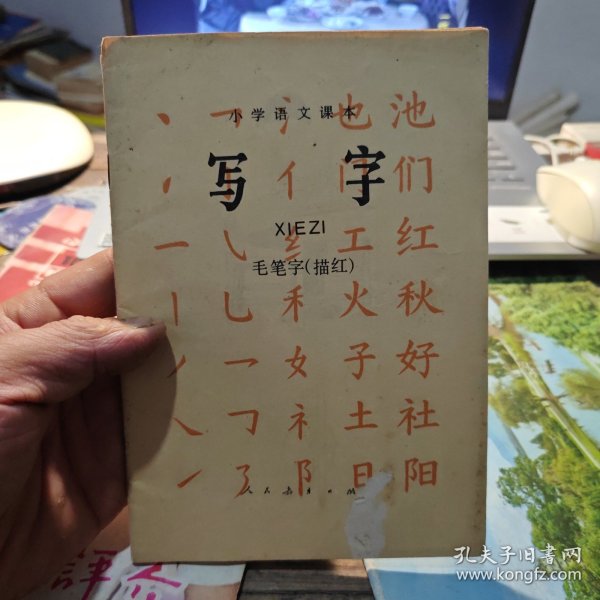 小学语文课本
丶 乛 氵 也 池
写字
丿 亻 门 们
XIEZI
一 乀 纟 工 红
毛笔字(描红)
丨 乚 禾 火 秋
丿 乛 女 子 好
㇏ 𠃌 礻 土 社
㇀ 阝 日 阳
人民教育出版
孔夫子旧书网
www.kongfz.com